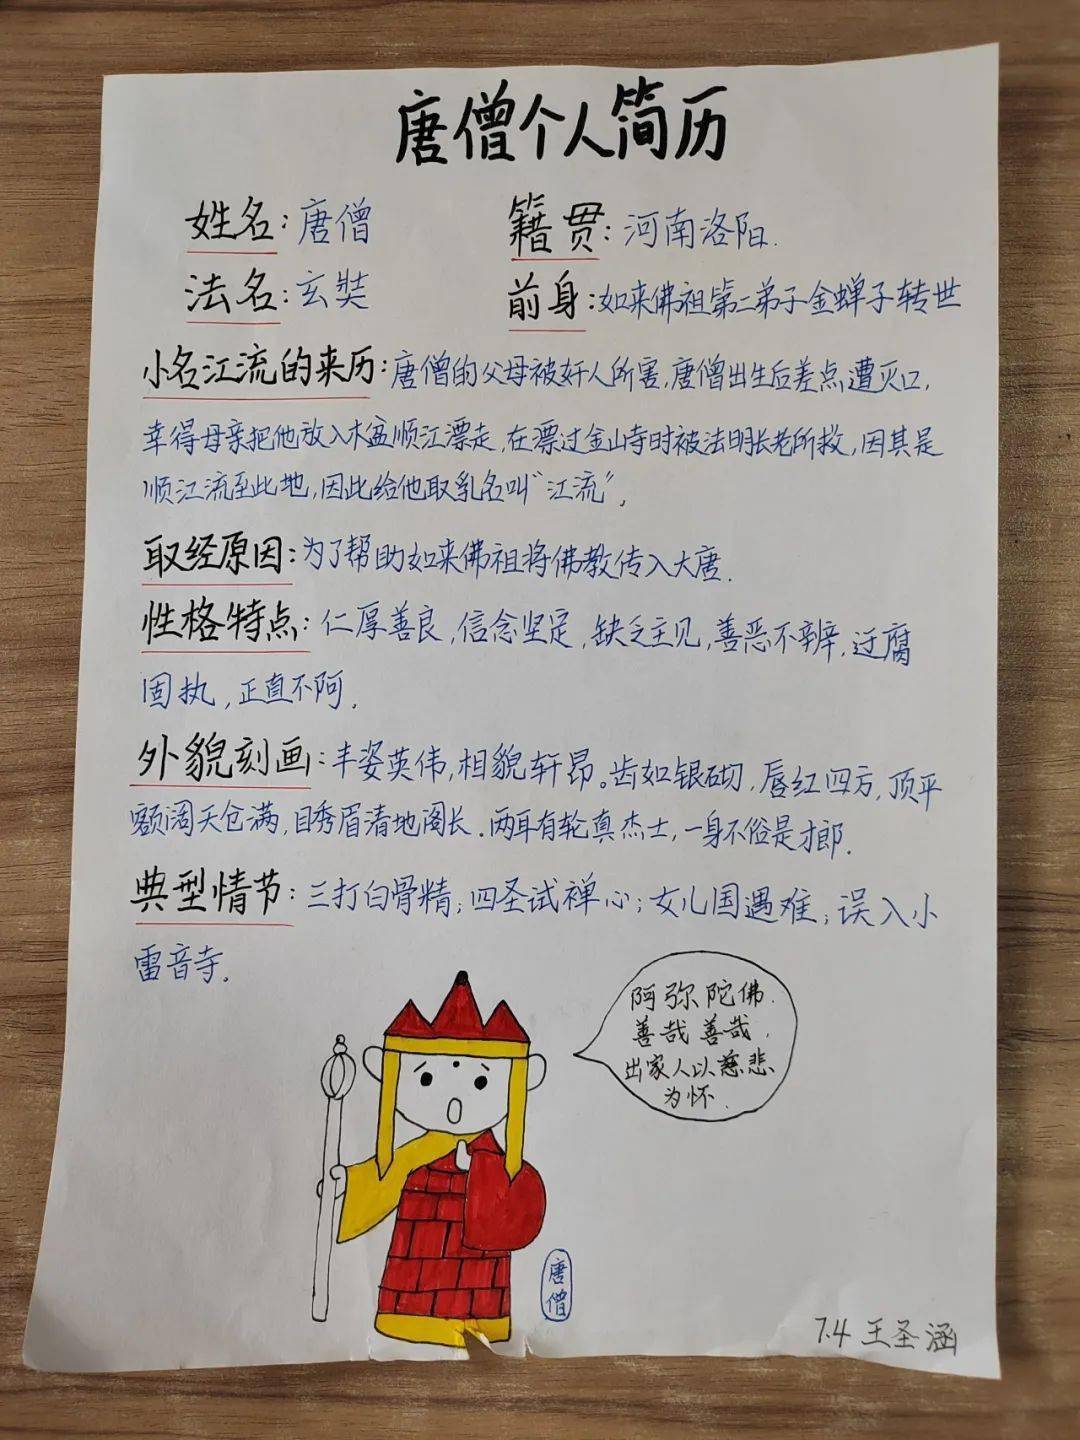 唐僧个人简历
姓名:唐僧 籍贯:河南洛阳.
法名:玄奘 前身:如来佛祖第二弟子金蝉子转世
小名江流的来历:唐僧的父母被奸人所害,唐僧出生后差点遭灭口,
幸得母亲把他放入木盆顺江漂走,在漂过金山寺时被法明长老所救,因其是
顺江流至此地,因此给他取乳名叫"江流".
取经原因:为了帮助如来佛祖将佛教传入大唐.
性格特点:仁厚善良,信念坚定,缺乏主见,善恶不辨,迂腐
固执,正直不阿.
外貌刻画:丰姿英伟,相貌轩昂。齿如银砌,唇红四方,顶平
额阔天仓满,目秀眉清地阁长.两耳有轮真杰士,一身不俗是才郎.
典型情节:三打白骨精;四圣试禅心;女儿国遇难;误入小
雷音寺.
阿弥陀佛.
善哉善哉.
出家人以慈悲
为怀.
唐僧
7.4 王圣涵